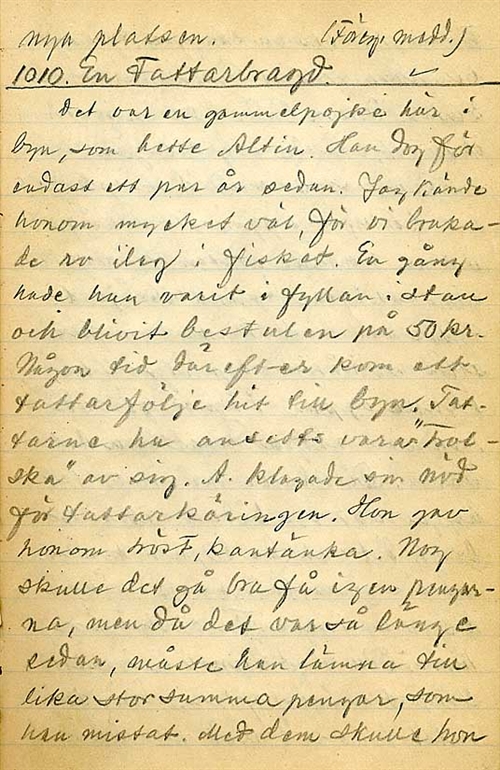 nya platsen. (Föreg. medd.)
1010. En Tattarbragd.
Det var en gammelpojke här i
byn, som hette Altin. Han dog för
endast ett par år sedan. Jag kände
honom mycket väl, för vi bruka-
de ro ihop i fisket. En gång
hade han varit i fyllan i stan
och blivit bestulen på 50 kr.
Någon tid därefter kom ett
tattarfölje hit till byn. Tat-
tarne ha ansetts vara "trol-
ska" av sig. A. klagade sin nöd
för tattarkäringen. Hon gav
honom tröst, kantänka. Nog
skulle det gå bra få igen pengar-
na, men då det var så länge
sedan, måste han lämna till
lika stor summa pengar, som
han mistat. Med dem skulle hon